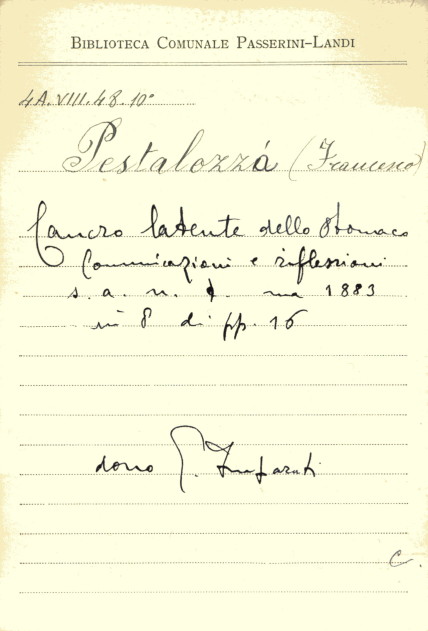 BIBLIOTECA COMUNALE PASSERINI-LANDI
4A.VIII.48.10°
Pestalozzá (Francesco)
Cancro latente dello stomaco
Comunicazioni e riflessioni
s. a. n. t. ma 1883
in 8 di pp. 16
dono G. Imparati
C.